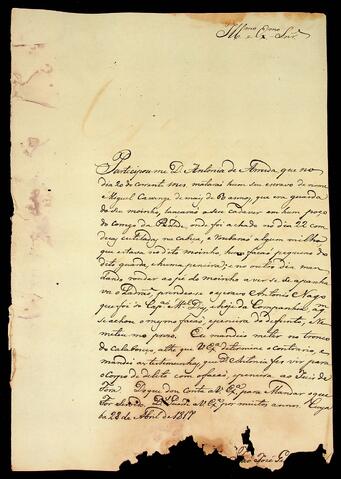 Illmo. e Exmo. Snr.
Participou-me D. Antonia de Almeida, que no
dia 20 do corrente mes, matarão hum seu escravo de nome
Miguel de mais de 13 annos, que era guarda
do seu moinho, lançarão o seu cadaver em hum poço
do corrego da, onde foi achado no dia 22 com
dez cutiladas na cabeça, e roubarão algum milho
que estava no dito moinho, huã facas pequena do
dito guarda, e huma peneira; e no outro dia man
dando rondar ao pé do moinho a ver se se apanha
va o Ladrão, prendeo-se o escravo Antonio Nagô
que foi do Capam., e hoje da Companhia,
se achou a mesma faca, e peneira do defunto,
meteu no poço. E o mandei meter no tronco
do Calabouço, athe que V. Exa. determine o contrario, e
mandei as testemunhas, que D. Antonia fez vir para
o Corpo de delito com a faca, e peneira ao Juis de
Fora. Do que dou conta a V. Exa. para Mandar o que
For Servido. Ds. Guarde a V. Exa. por muitos annos. Cuya
bá 28 de Abril de 1817
José